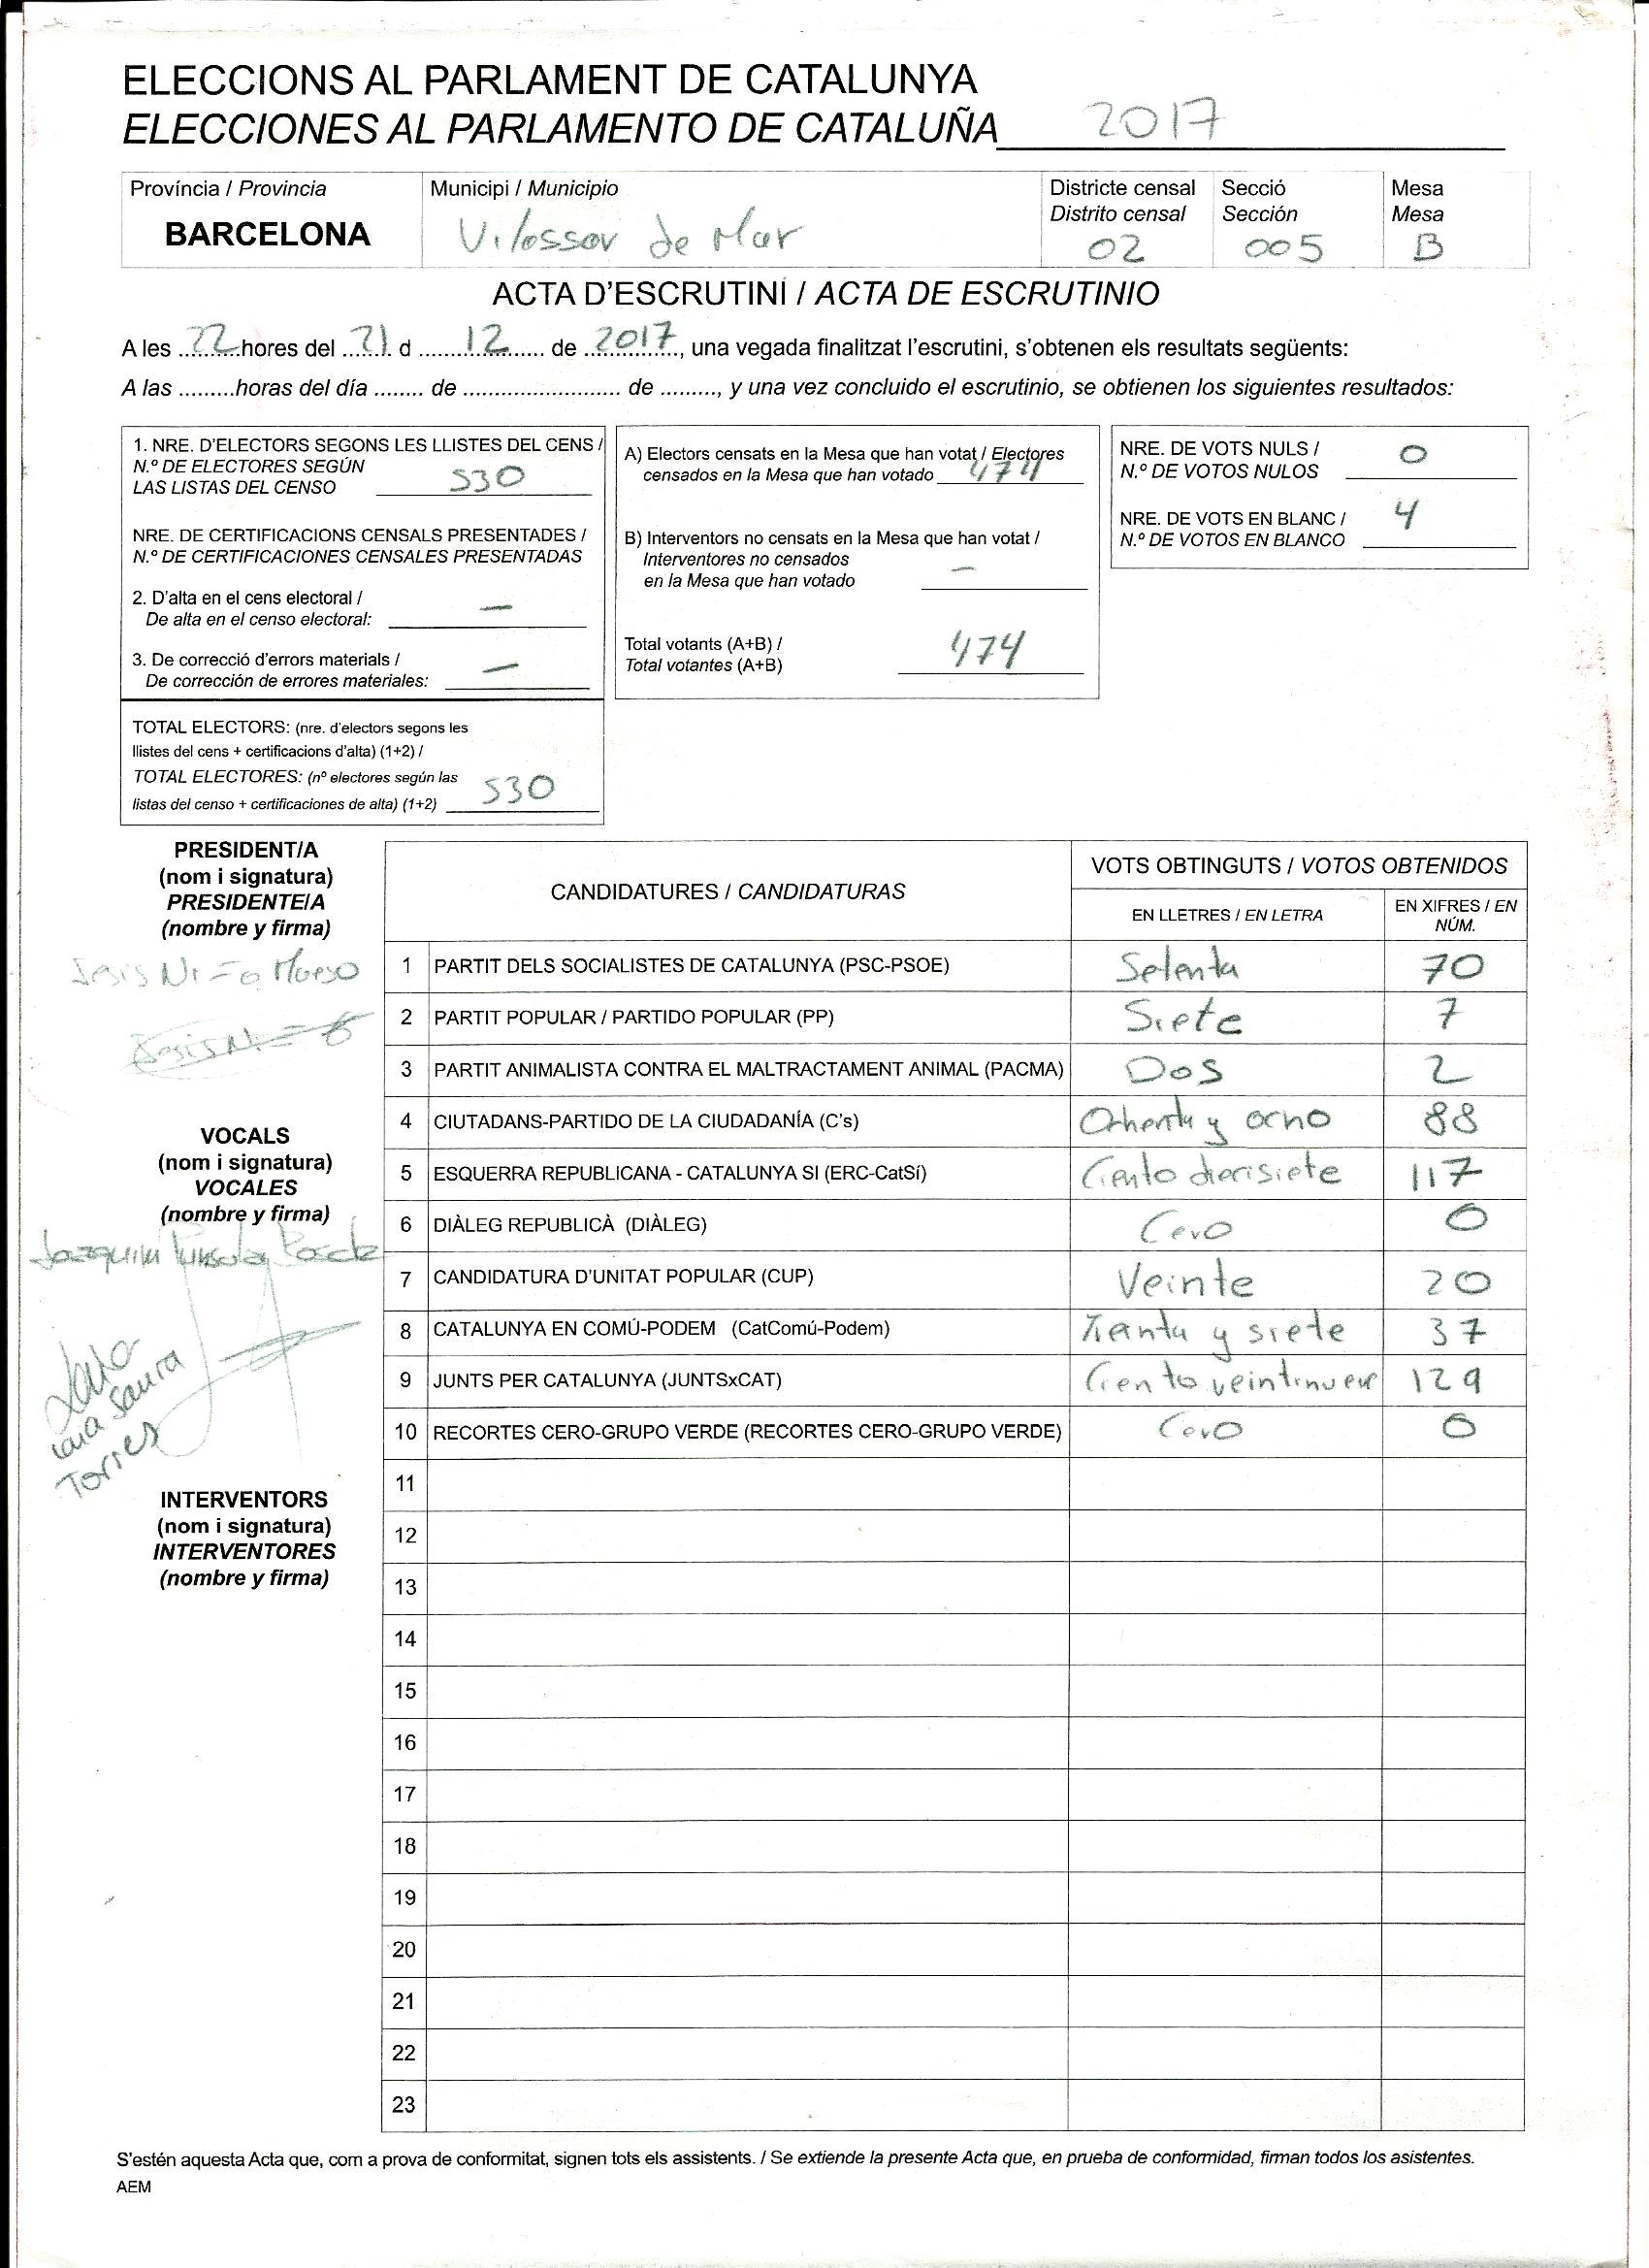 ELECCIONS AL PARLAMENT DE CATALUNYA
ELECCIONES AL PARLAMENTO DE CATALUÑA 2017
Província / Provincia
BARCELONA
Municipi / Municipio
Vilassar de Mar
Districte censal
Distrito censal
02
Secció
Sección
005
Mesa
Mesa
B
ACTA D'ESCRUTINI / ACTA DE ESCRUTINIO
A les 22 hores del 21 d 12 de 2017, una vegada finalitzat l'escrutini, s'obtenen els resultats següents:
A las .........horas del día ........ de ......................... de ........., y una vez concluido el escrutinio, se obtienen los siguientes resultados:
1. NRE. D'ELECTORS SEGONS LES LLISTES DEL CENS /
N.º DE ELECTORES SEGÚN
LAS LISTAS DEL CENSO 530
NRE. DE CERTIFICACIONS CENSALS PRESENTADES /
N.º DE CERTIFICACIONES CENSALES PRESENTADAS
2. D'alta en el cens electoral /
De alta en el censo electoral: —
3. De correcció d'errors materials /
De corrección de errores materiales: —
TOTAL ELECTORS: (nre. d'electors segons les
llistes del cens + certificacions d'alta) (1+2) /
TOTAL ELECTORES: (nº electores según las
listas del censo + certificaciones de alta) (1+2) 530
A) Electors censats en la Mesa que han votat / Electores
censados en la Mesa que han votado 474
B) Interventors no censats en la Mesa que han votat /
Interventores no censados
en la Mesa que han votado —
Total votants (A+B) /
Total votantes (A+B) 474
NRE. DE VOTS NULS /
N.º DE VOTOS NULOS 0
NRE. DE VOTS EN BLANC /
N.º DE VOTOS EN BLANCO 4
PRESIDENT/A
(nom i signatura)
PRESIDENTE/A
(nombre y firma)
VOCALS
(nom i signatura)
VOCALES
(nombre y firma)
Joaquim
Laia Saura
Torres
INTERVENTORS
(nom i signatura)
INTERVENTORES
(nombre y firma)
CANDIDATURES / CANDIDATURAS
VOTS OBTINGUTS / VOTOS OBTENIDOS
EN LLETRES / EN LETRA
EN XIFRES / EN
NÚM.
1 PARTIT DELS SOCIALISTES DE CATALUNYA (PSC-PSOE) Setenta 70
2 PARTIT POPULAR / PARTIDO POPULAR (PP) Siete 7
3 PARTIT ANIMALISTA CONTRA EL MALTRACTAMENT ANIMAL (PACMA) Dos 2
4 CIUTADANS-PARTIDO DE LA CIUDADANÍA (C's) Ochenta y ocho 88
5 ESQUERRA REPUBLICANA - CATALUNYA SI (ERC-CatSí) Ciento diecisiete 117
6 DIÀLEG REPUBLICÀ (DIÀLEG) Cero 0
7 CANDIDATURA D'UNITAT POPULAR (CUP) Veinte 20
8 CATALUNYA EN COMÚ-PODEM (CatComú-Podem) Treinta y siete 37
9 JUNTS PER CATALUNYA (JUNTSxCAT) Ciento veintinueve 129
10 RECORTES CERO-GRUPO VERDE (RECORTES CERO-GRUPO VERDE) Cero 0
11
12
13
14
15
16
17
18
19
20
21
22
23
S'estén aquesta Acta que, com a prova de conformitat, signen tots els assistents. / Se extiende la presente Acta que, en prueba de conformidad, firman todos los asistentes.
AEM